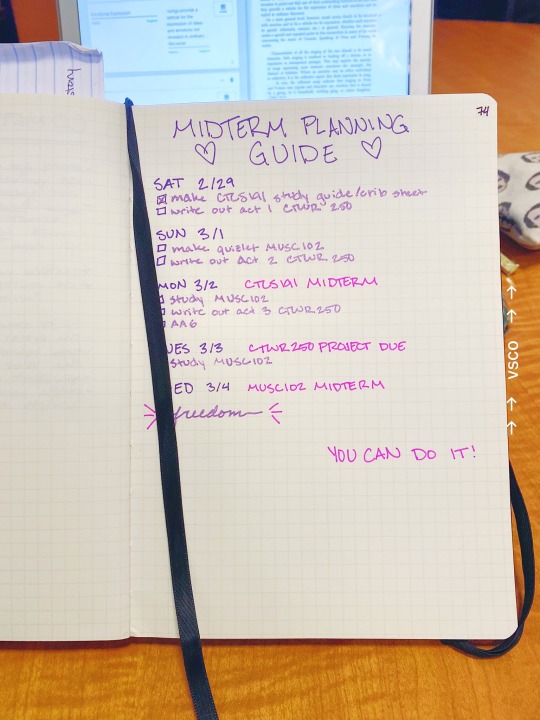 74
MIDTERM PLANNING
♡ GUIDE ♡
SAT 2/29
☒ make CTCS191 study guide/crib sheet
☐ write out act 1 CTWR 250
SUN 3/1
☐ make quizlet MUSC102
☐ write out Act 2 CTWR 250
MON 3/2 CTCS191 MIDTERM
☐ study MUSC102
☐ write out act 3 CTWR250
☐ AAG
UES 3/3 CTWR250 PROJECT DUE
study MUSC102
ED 3/4 MUSC102 MIDTERM
freedom
YOU CAN DO IT!
VSCO